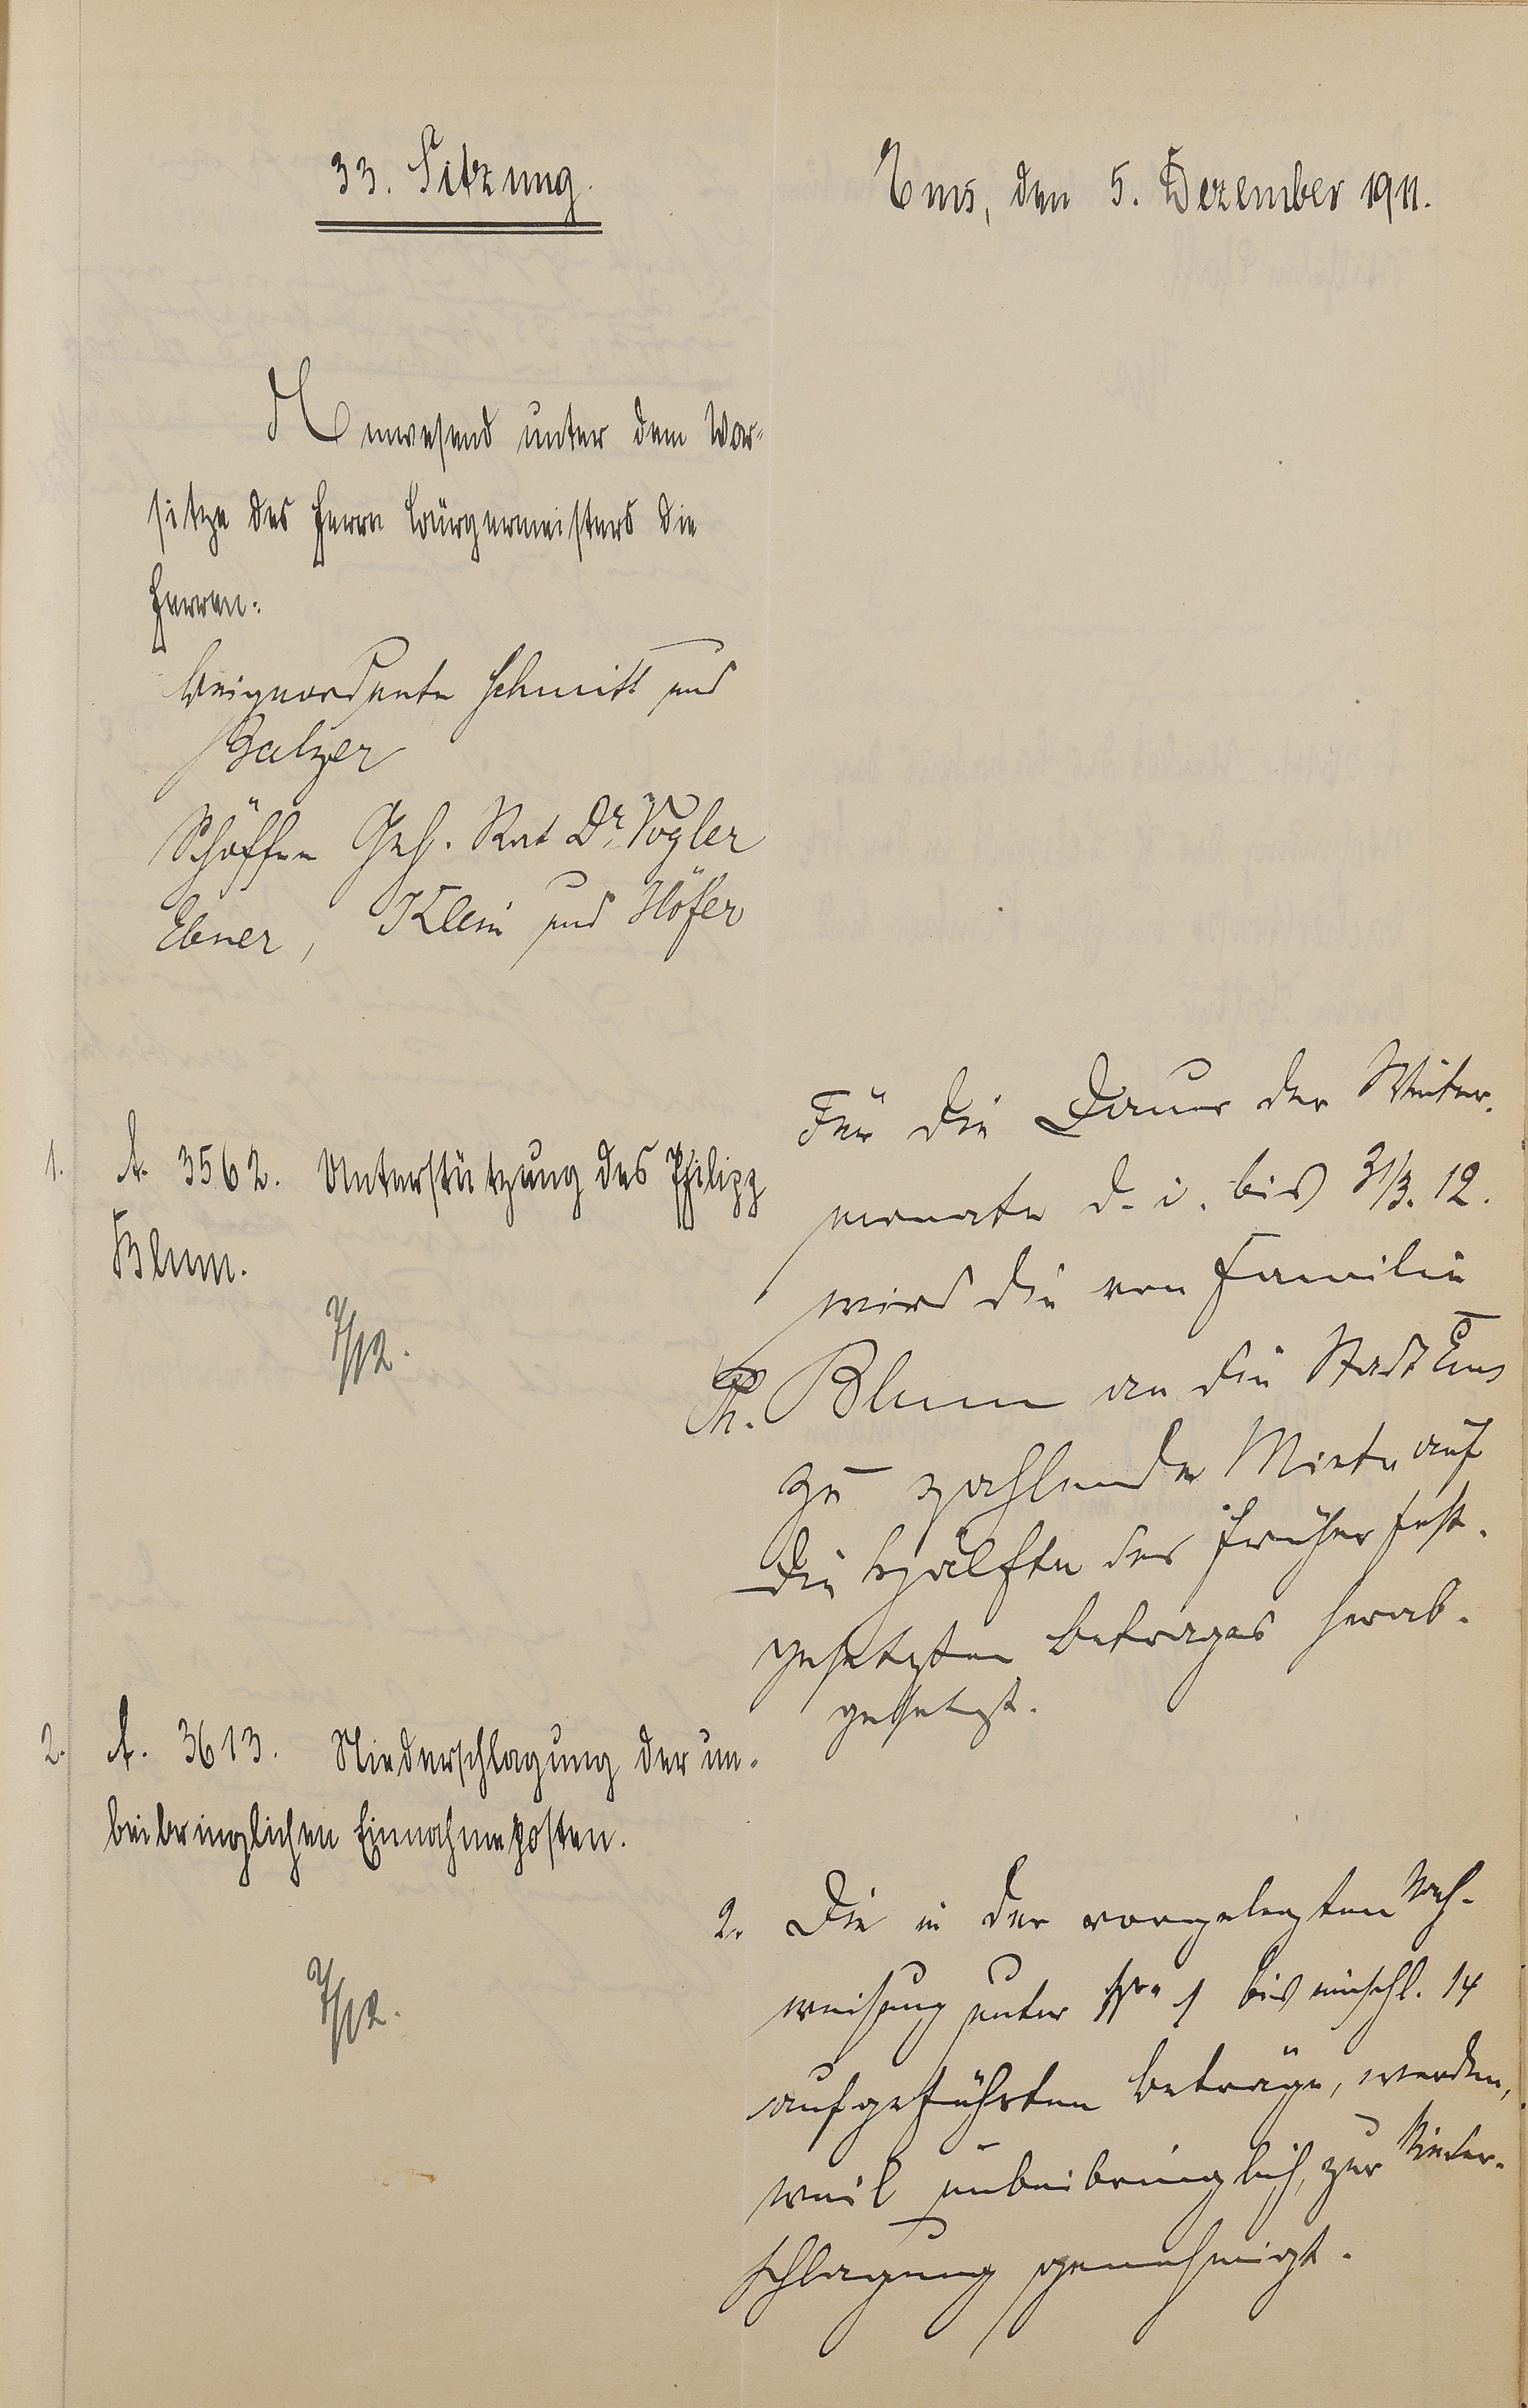 33. Sitzung.
Ems, den 5. Dezember 1911.
Anwesend unter dem Vor-
sitze des Herrn Bürgermeisters die
Herren:
Beigeordnete Schmitt und
Balzer
Schöffen Geh. Rat Dr. Vogler
Ebner, Klein und Höfer
1. A. 3562. Unterstützung des Philipp
Blum.
7/12.
Für die Dauer der Winter-
monate d. i. bis 31/3. 12.
wird die von Familie
Ph. Blum an die Stadt Ems
zu zahlende Miete auf
die Hälfte des früher fest-
gesetzten Betrages herab-
gesetzt.
2. A. 3613. Niederschlagung der un-
beibringlichen Einnahmeposten.
7/12.
2. Die in der vorgelegten Nach-
weisung unter No 1 bis einschl. 14
aufgeführten Beträge, werden,
weil unbeibringlich, zur Nieder-
schlagung genehmigt.